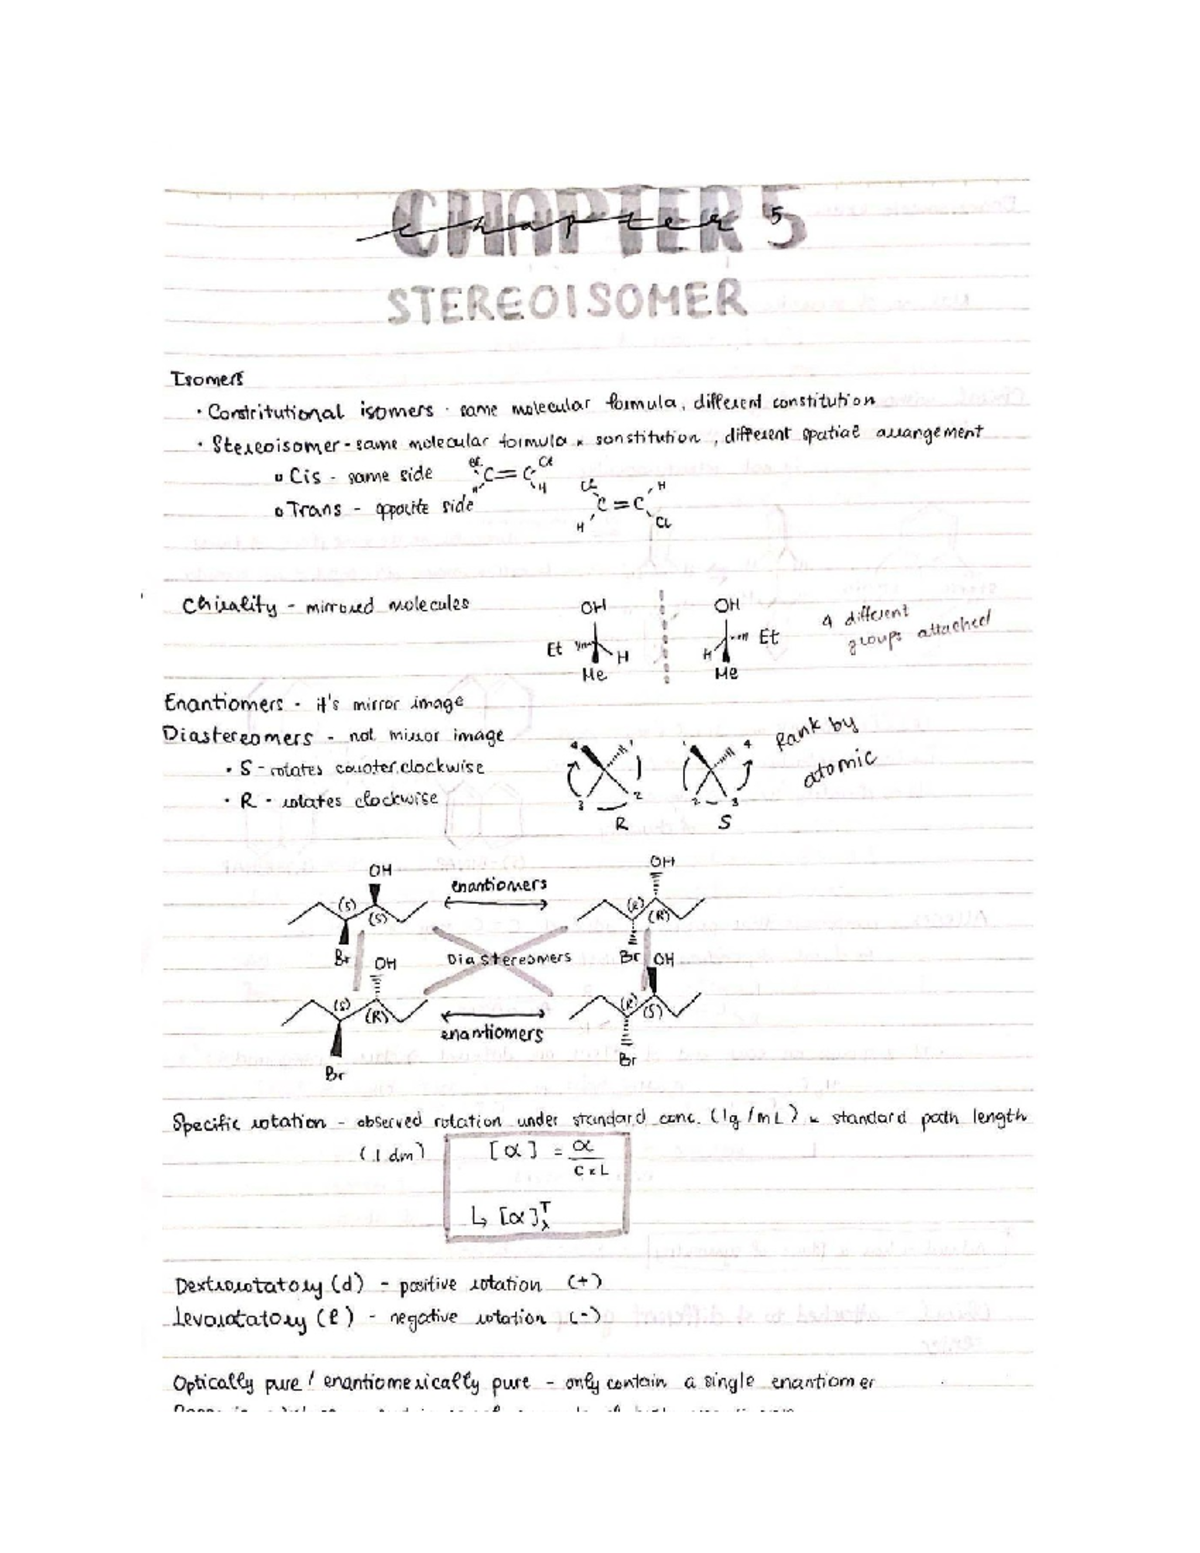 CHAPTER 5
Chapter 5
STEREOISOMER
Isomers
• Constritutional isomers - same molecular formula, different constitution
• Stereoisomer - same molecular formula & sonstitution, different spatial arrangement
Cis - same side
Cl Cl
C=C
H H
Trans - opposite side
Cl H
C=C
H Cl
Chirality - mirrored molecules
OH OH
Et H H Et
Me Me
4 different
groups attached
Enantiomers - it's mirror image
Diastereomers - not mirror image
• S - rotates counter.clockwise
• R - rotates clockwise
4 1 1 4
3 2 2 3
R S
Rank by
atomic
OH OH
enantiomers
(S) (S) (R) (R)
Br OH Diastereomers Br OH
(S) (R) (R) (S)
enantiomers
Br Br
Specific rotation - observed rotation under standard conc. (1g/mL) & standard path length
(1 dm) [α] = α
C x L
↳ [α]
T
λ
Dextrorotatory (d) - positive rotation (+)
Levorotatory (l) - negative rotation (-)
Optically pure / enantiomerically pure - only contain a single enantiomer